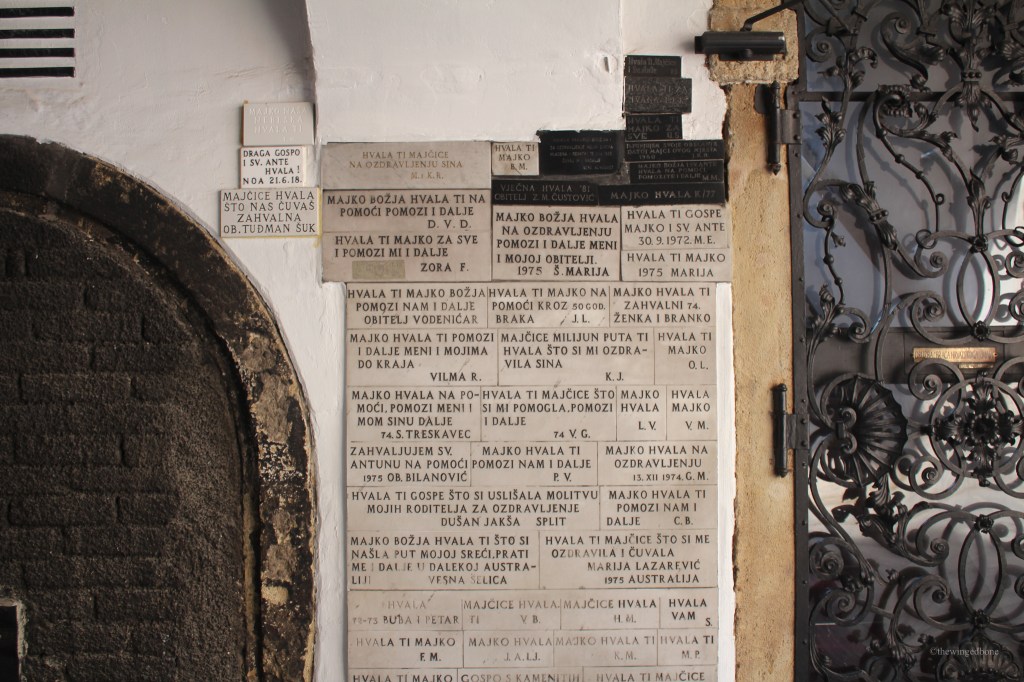 DRAGA GOSPO
I SV. ANTE
HVALA!
NOA 21.6.18.
MAJČICE HVALA
ŠTO NAS ČUVAŠ
ZAHVALNA
OB. TUDMAN ŠUK
HVALA TI MAJČICE
NA OZDRAVLJENJU SINA
HVALA TI
MAJKO
B.M.
VJEČNA HVALA '81
OBITELJ Z.M. ČUSTOVIĆ
MAJKO HVALA K/77
MAJKO BOŽJA HVALA TI NA
POMOĆI POMOZI I DALJE
D. V. D.
HVALA TI MAJKO ZA SVE
I POMOZI MI I DALJE
ZORA F.
MAJKO BOŽJA HVALA
NA OZDRAVLJENJU
POMOZI I DALJE MENI
I MOJOJ OBITELJI.
1975 Š. MARIJA
HVALA TI GOSPE
MAJKO I SV. ANTE
30.9.1972. M.E.
HVALA TI MAJKO
1975 MARIJA
HVALA TI MAJKO BOŽJA
POMOZI NAM I DALJE
OBITELJ VODENIČAR
HVALA TI MAJKO NA
POMOĆI KROZ 50 GOD.
BRAKA J.L.
HVALA TI MAJKO
ZAHVALNI 74.
ŽENKA I BRANKO
MAJKO HVALA TI POMOZI
I DALJE MENI I MOJIMA
DO KRAJA
VILMA R.
MAJČICE MILIJUN PUTA TI
HVALA ŠTO SI MI OZDRA-
VILA SINA
K.J.
HVALA TI
MAJKO
O.L.
MAJKO HVALA NA PO-
MOĆI, POMOZI MENI I
MOM SINU DALJE
74. S. TRESKAVEC
HVALA TI MAJČICE ŠTO
SI MI POMOGLA, POMOZI
I DALJE
74 V.G.
MAJKO
HVALA
L.V.
HVALA
MAJKO
V M.
ZAHVALJUJEM SV.
ANTUNU NA POMOĆI
1975 OB. BILANOVIĆ
MAJKO HVALA TI
POMOZI NAM I DALJE
P. V.
MAJKO HVALA NA
OZDRAVLJENJU
13. XII 1974. G.M.
HVALA TI GOSPE ŠTO SI USLIŠALA MOLITVU
MOJIH RODITELJA ZA OZDRAVLJENJE
DUŠAN JAKŠA SPLIT
MAJKO HVALA TI
POMOZI NAM I
DALJE C.B.
MAJKO BOŽJA HVALA TI ŠTO SI
NAŠLA PUT MOJOJ SREĆI, PRATI
ME I DALJE U DALEKOJ AUSTRA-
LIJI VESNA SELICA
HVALA TI MAJČICE ŠTO SI ME
OZDRAVILA I ČUVALA
MARIJA LAZAREVIĆ
1975 AUSTRALIJA
HVALA
72-73 BUBA I PETAR
MAJČICE HVALA
TI V B.
MAJČICE HVALA
H.M.
HVALA
VAM S.
HVALA TI MAJKO
F.M.
MAJKO HVALA
J. A. LJ.
MAJKO HVALA
K.M.
HVALA TI
M P.
HVALA TI MAJKO
GOSPO S KAMENITIH
HVALA TI MAJČICE
©thewingedbone